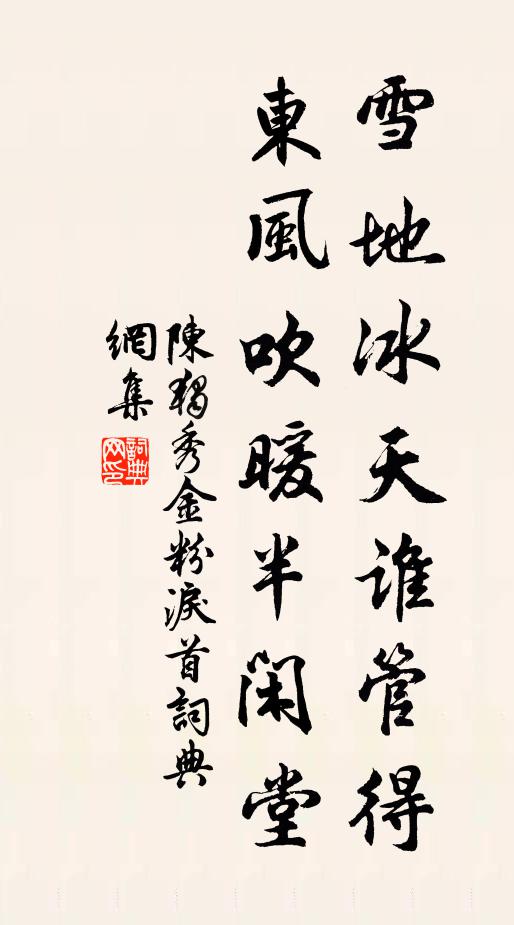 雪地冰天誰管得
東風吹暖半閑堂
陳獨秀金粉淚首詞典
網集
詞典
网印